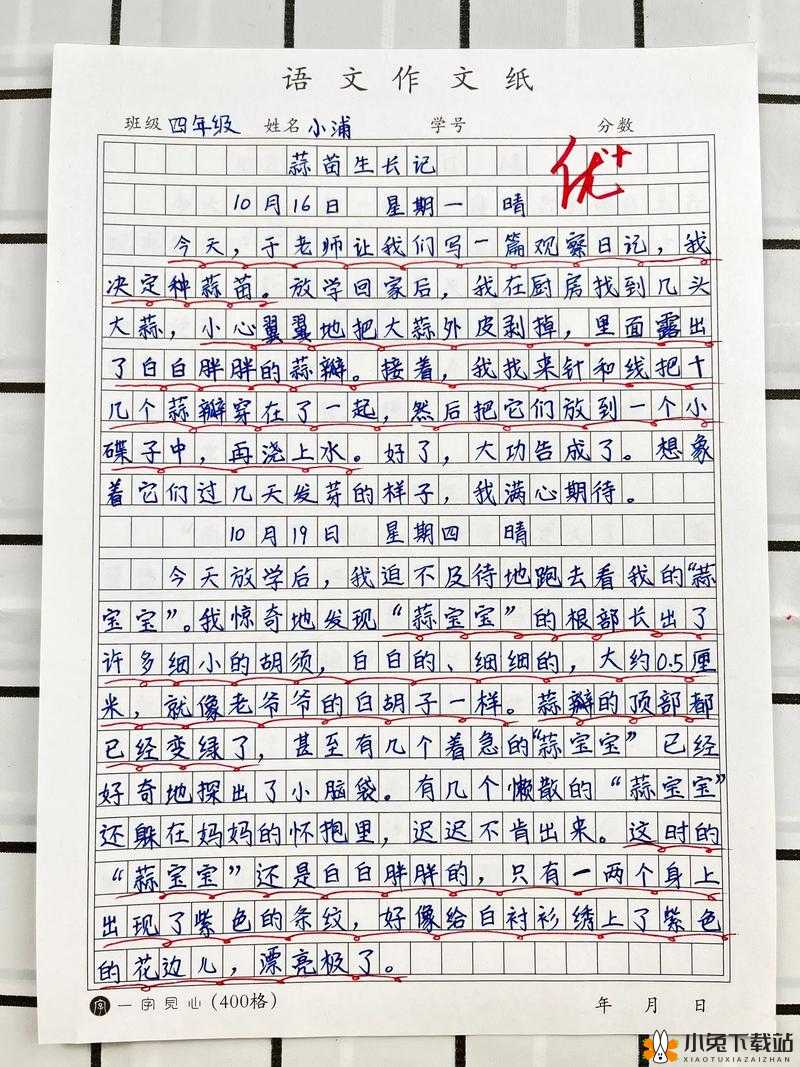 语文作文纸
班级 四年级 姓名 小浦 学号 分数
蒜苗生长记
优+
10月16日 星期一 晴
今天，于老师让我们写一篇观察日记，我
决定种蒜苗。放学回家后，我在厨房找到几头
大蒜，小心翼翼地把大蒜外皮剥掉，里面露出
了白白胖胖的蒜瓣。接着，我找来针和线把十
几个蒜瓣穿在了一起，然后把它们放到一个小
碟子中，再浇上水。好了，大功告成了。想象
着它们过几天发芽的样子，我满心期待。
10月19日 星期四 晴
今天放学后，我迫不及待地跑去看我的“蒜
宝宝”。我惊奇地发现“蒜宝宝”的根部长出了
许多细小的胡须，白白的、细细的，大约0.5厘
米，就像老爷爷的白胡子一样。蒜瓣的顶部都
已经变绿了，甚至有几个着急的“蒜宝宝”已经
好奇地探出了小脑袋。有几个懒散的“蒜宝宝”
还躲在妈妈的怀抱里，迟迟不肯出来。这时的
“蒜宝宝”还是白白胖胖的，只有一两个身上
出现了紫色的条纹，好像给白衬衫绣上了紫色
的花边儿，漂亮极了。
字 一字见心（400格） 年 月 日
小兔下载站
XIAOTUXIAZAIZHAN